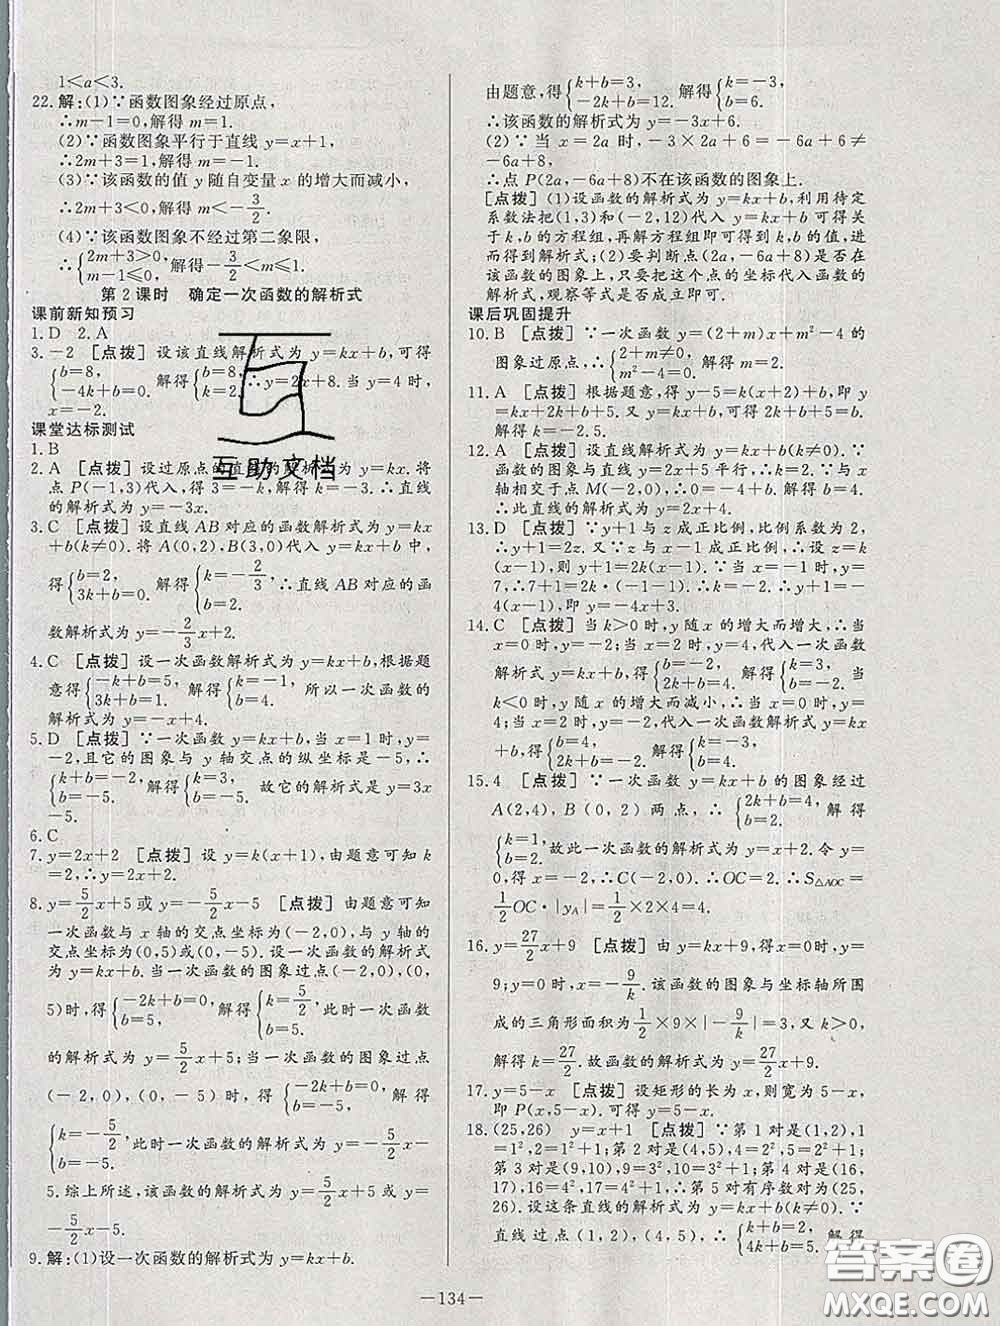 1<a<3.
22.解:(1)∵函数图象经过原点,
∴m-1=0,解得 m=1.
(2)∵函数图象平行于直线 y=x+1,
∴2m+3=1,解得 m=-1.
(3)∵该函数的值 y 随自变量 x 的增大而减小,
∴2m+3<0,解得 m<-3/2.
(4)∵该函数图象不经过第二象限,
∴{2m+3>0, m-1⩽0, 解得-3/2<m⩽1.
第2课时 确定一次函数的解析式
课前新知预习
1.D 2.A
3.-2 [点拨]设该直线解析式为 y=kx+b,可得
{b=8, -4k+b=0, 解得{b=8, ∴y=2x+8.当 y=4 时,
x=-2.
课堂达标测试
1.B
2.A [点拨]设过原点的直线的解析式为 y=kx.将
点 P(-1,3)代入,得 3=-k,解得 k=-3.∴直线
的解析式为 y=-3x.
3.C [点拨]设直线 AB 对应的函数解析式为 y=kx
+b(k≠0).将 A(0,2),B(3,0)代入 y=kx+b 中,
得{b=2, 3k+b=0, 解得{k=-2/3, b=2, ∴直线 AB 对应的函
数解析式为 y=-2/3x+2.
4.C [点拨]设一次函数解析式为 y=kx+b,根据题
意得{-k+b=5, 3k+b=1, 解得{k=-1, b=4, 所以一次函数的
解析式为 y=-x+4.
5.D [点拨]∵一次函数 y=kx+b,当 x=1 时,y=
-2,且它的图象与 y 轴交点的纵坐标是-5,∴
{k+b=-2, b=-5, 解得{k=3, b=-5. 故它的解析式是 y=3x
-5.
6.C
7.y=2x+2 [点拨]设 y=k(x+1),由题意可知 k
=2,∴y=2x+2.
8.y=5/2x+5 或 y=-5/2x-5 [点拨]由题意可知
一次函数与 x 轴的交点坐标为(-2,0),与 y 轴的
交点坐标为(0,5)或(0,-5).设一次函数的解析式
为 y=kx+b.当一次函数的图象过点(-2,0),(0,
5)时,得{-2k+b=0, b=5, 解得{k=5/2, b=5. 此时一次函数
的解析式为 y=5/2x+5;当一次函数的图象过点
(-2,0),(0,-5)时,得{-2k+b=0, b=-5, 解得
{k=-5/2, b=-5. 此时一次函数的解析式为 y=-5/2x-
5.综上所述,该函数的解析式为 y=5/2x+5 或 y=
-5/2x-5.
9.解:(1)设一次函数的解析式为 y=kx+b.
由题意,得{k+b=3, -2k+b=12. 解得{k=-3, b=6.
∴该函数的解析式为 y=-3x+6.
(2)∵当 x=2a 时,-3×2a+6=-6a+6≠
-6a+8,
∴点 P(2a,-6a+8)不在该函数的图象上.
[点拨](1)设函数的解析式为 y=kx+b,利用待定
系数法把(1,3)和(-2,12)代入 y=kx+b 可得关
于 k,b 的方程组,再解方程组即可得到 k,b 的值,进
而得到解析式;(2)要判断点(2a,-6a+8)是否在
该函数的图象上,只要把这个点的坐标代入函数的
解析式,观察等式是否成立即可.
课后巩固提升
10.B [点拨]∵一次函数 y=(2+m)x+m²-4 的
图象过原点,∴{2+m≠0, m²-4=0. 解得 m=2.
11.A [点拨]根据题意,得 y-5=k(x+2)+b,即 y
=kx+2k+b+5.又 y=kx+b,可得 2k+b+5=b.
解得 k=-2.5.
12.A [点拨]设直线解析式为 y=kx+b(k≠0).∵
函数的图象与直线 y=2x+5 平行,∴k=2.∵与 x
轴相交于点 M(-2,0),∴0=-4+b.解得 b=4.
∴此直线的解析式为 y=2x+4.
13.D [点拨]∵y+1 与 z 成正比例,比例系数为 2,
∴y+1=2z.又∵z 与 x-1 成正比例,∴设 z=k
(x-1),则 y+1=2k(x-1).∵当 x=-1 时,y=
7,∴7+1=2k·(-1-1).解得 k=-2.∴y+1=
-4(x-1),即 y=-4x+3.
14.C [点拨]当 k>0 时,y 随 x 的增大而增大,∴当
x=0 时,y=-2;当 x=2 时,y=4.代入一次函数
解析式 y=kx+b,得{b=-2, 2k+b=4. 解得{k=3, b=-2. 当
k<0 时,y 随 x 的增大而减小,∴当 x=0 时,y=
4;当 x=2 时,y=-2,代入一次函数解析式 y=kx
+b,得{b=4, 2k+b=-2. 解得{k=-3, b=4.
15.4 [点拨]∵一次函数 y=kx+b 的图象经过
A(2,4),B(0,2)两点,∴{2k+b=4, b=2. 解得
{k=1, b=2. 故此一次函数的解析式为 y=x+2.令 y
=0,解得 x=-2.∴C(-2,0).∴OC=2.∴S△AOC=
1/2OC·|yA|=1/2×2×4=4.
16.y=27/2x+9 [点拨]由 y=kx+9,得 x=0 时,y=
9;y=0 时,x=-9/k.该函数的图象与坐标轴所围
成的三角形面积为1/2×9×|-9/k|=3.又 k>0,
解得 k=27/2.故函数的解析式为 y=27/2x+9.
17.y=5-x [点拨]设矩形的长为 x,则宽为 5-x,
即 P(x,5-x).可得 y=5-x.
18.(25,26) y=x+1 [点拨]∵第 1 对是(1,2),
1=1²,1+1=2;第 2 对是(4,5),4=2²,4+1=5;
第 3 对是(9,10),9=3²,10=9+1;第 4 对是(16,
17),16=4²,16+1=17,∴第 5 对有序数对为(25,
26).设这条直线的解析式为 y=kx+b(k≠0).∵
直线过点(1,2),(4,5),∴{k+b=2, 4k+b=5. 解得
互助文档
—134—
答案圈
MXQE.COM